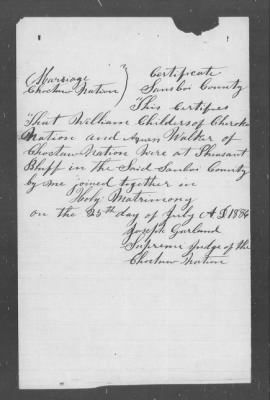 Marriage ) Certificate
Choctaw Nation ) Sansboi County
This Certifies
That William Childers of Cherokee
Nation and Agnes Walker of
Choctaw Nation were at Pheasant
Bluff in the Said Sanboi County
by me joined together in
Holy Matrimony
on the 25th day of July A.D 1884
Joseph Garland
Supreme Judge of the
Choctaw Nation